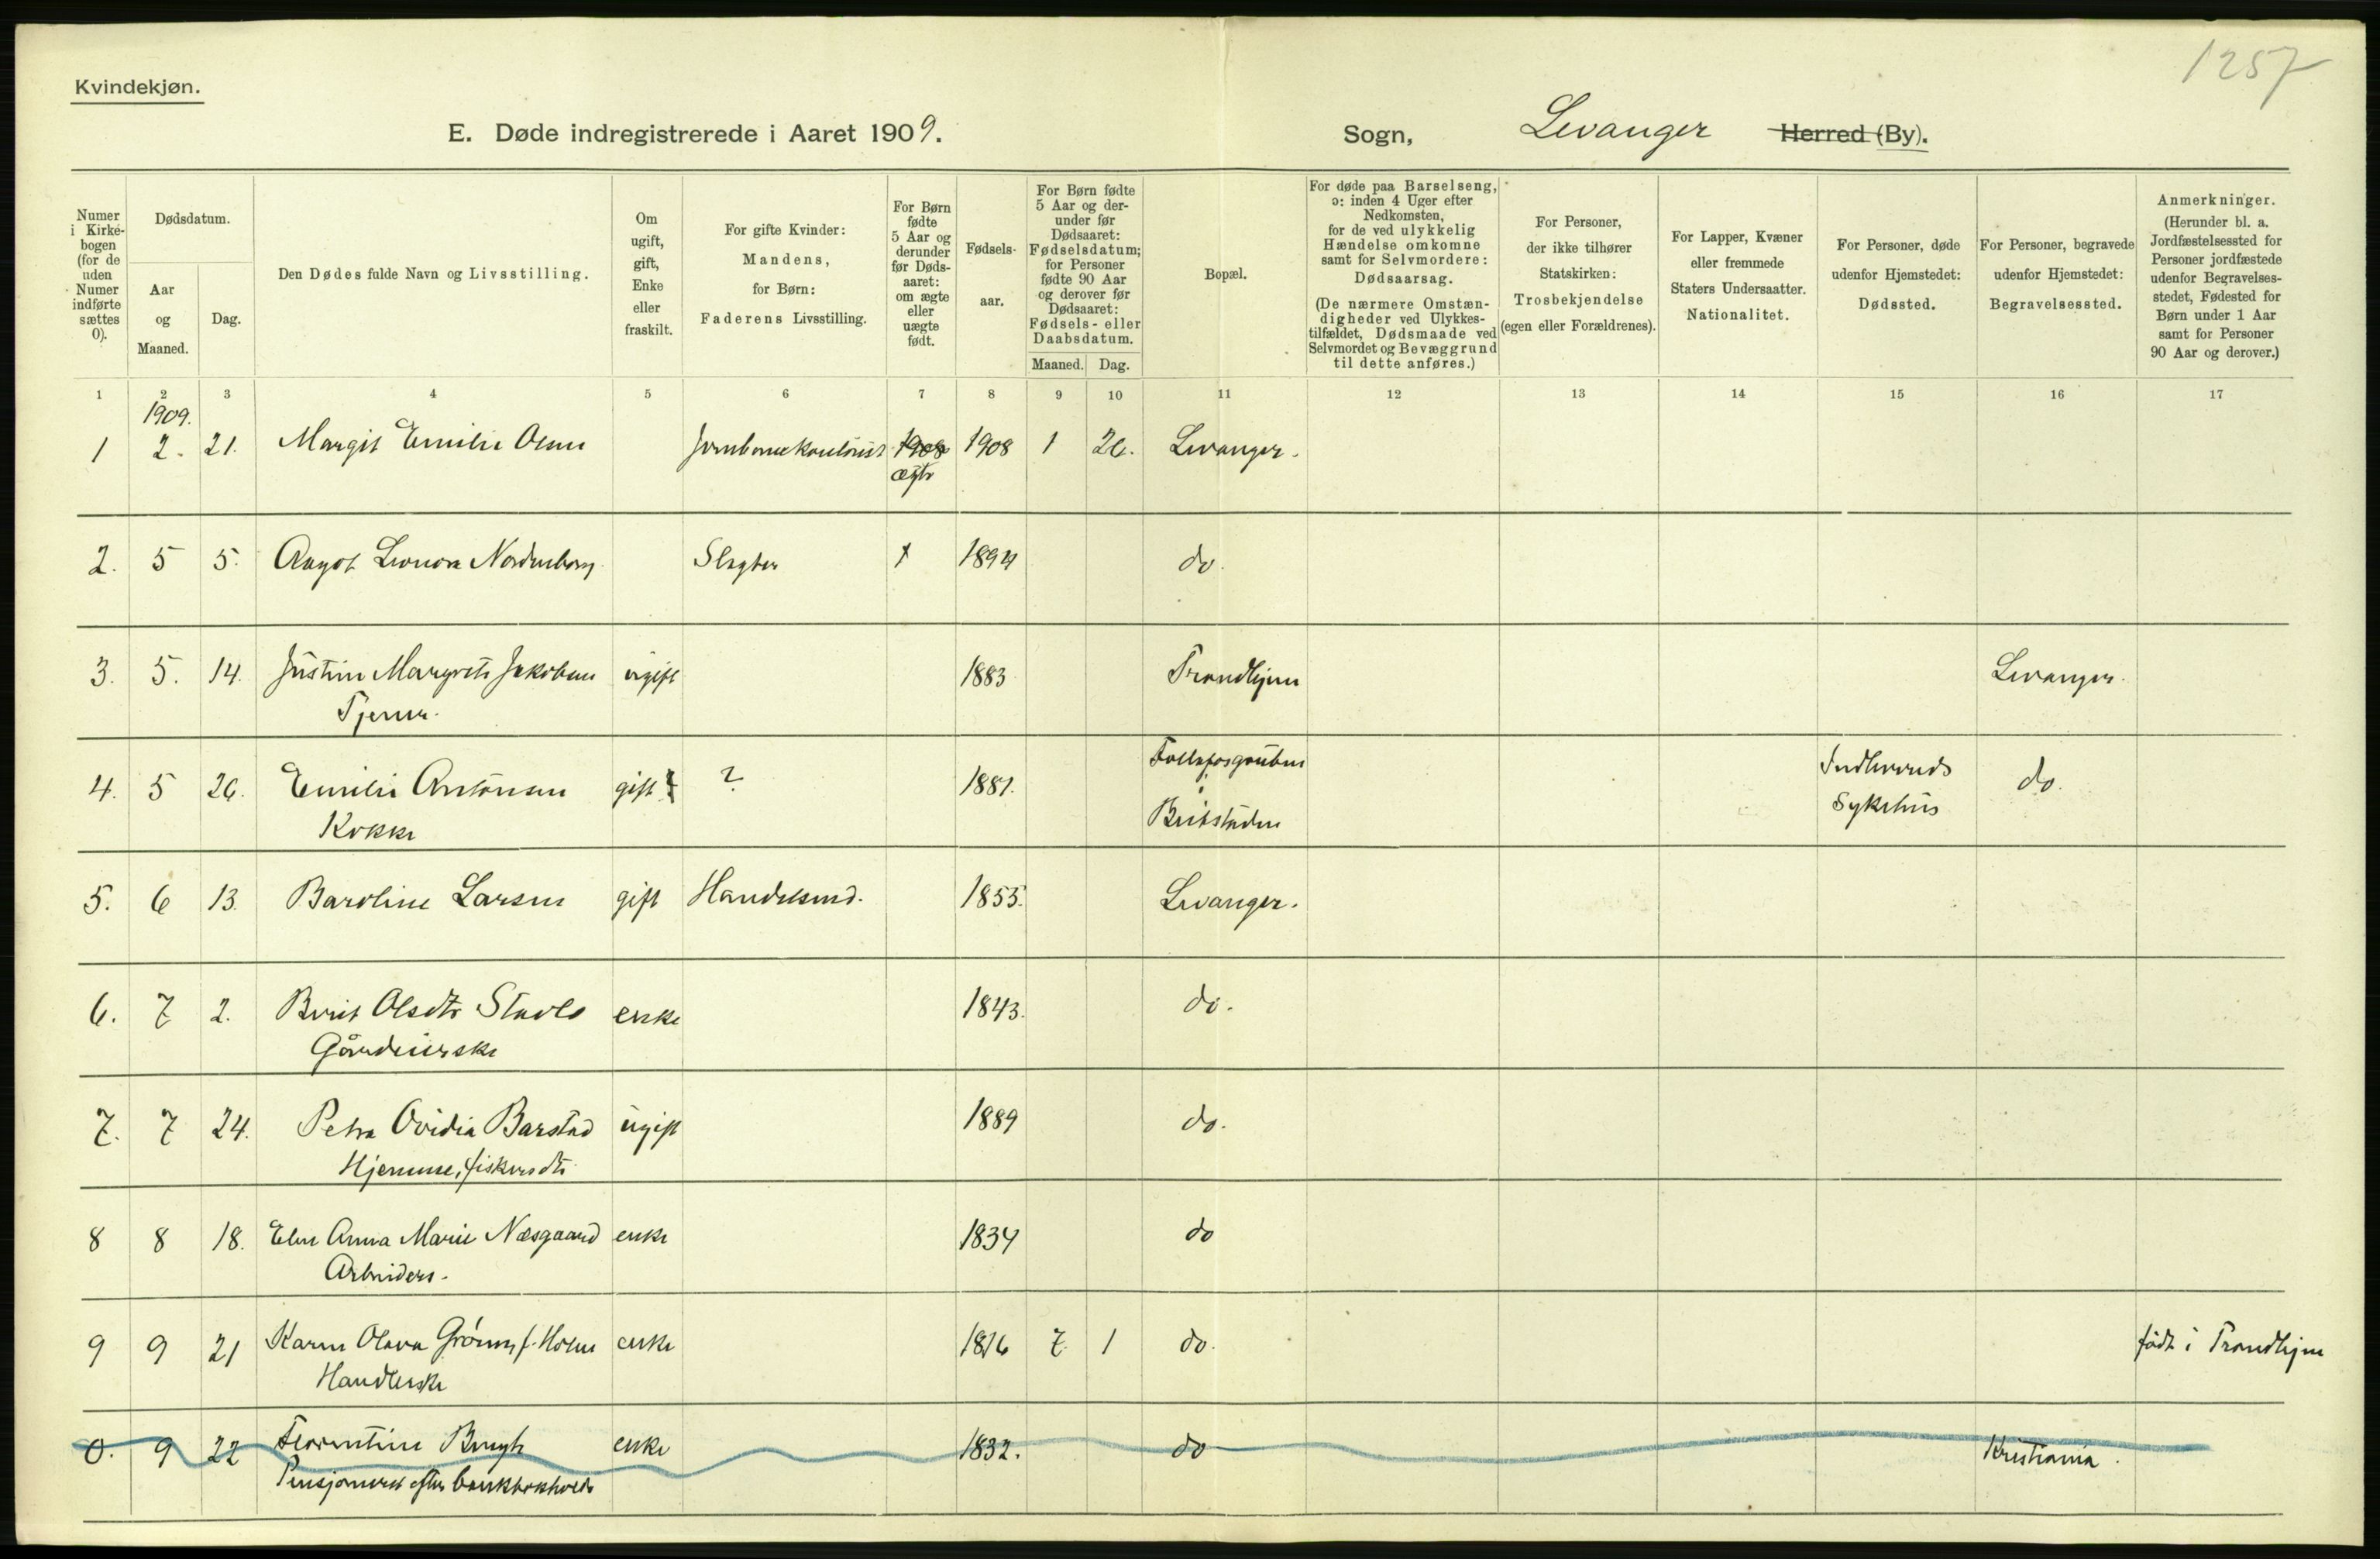 1257
Kvindekjøn.
E. Døde indregistrerede i Aaret 1909.
Sogn, Levanger Herred (By).
Numer i Kirke-bogen (for de uden Numer indførte sættes 0).
Dødsdatum.
Aar og Maaned.
Dag.
Den Dødes fulde Navn og Livsstilling.
Om ugift, gift, Enke eller fraskilt.
For gifte Kvinder: Mandens, for Børn: Faderens Livsstilling.
For Børn fødte 5 Aar og derunder før Døds-aaret: om ægte eller uægte født.
Fødsels-aar.
For Børn fødte 5 Aar og der-under før Dødsaaret: Fødselsdatum; for Personer fødte 90 Aar og derover før Dødsaaret: Fødsels- eller Daabsdatum.
Maaned. Dag.
Bopæl.
For døde paa Barselseng, ɔ: inden 4 Uger efter Nedkomsten, for de ved ulykkelig Hændelse omkomne samt for Selvmordere: Dødsaarsag.
(De nærmere Omstæn-digheder ved Ulykkes-tilfældet, Dødsmaade ved Selvmordet og Bevæggrund til dette anføres.)
For Personer, der ikke tilhører Statskirken: Trosbekjendelse (egen eller Forældrenes).
For Lapper, Kvæner eller fremmede Staters Undersaatter. Nationalitet.
For Personer, døde udenfor Hjemstedet: Dødssted.
For Personer, begravede udenfor Hjemstedet: Begravelsessted.
Anmerkninger.
(Herunder bl. a. Jordfæstelsessted for Personer jordfæstede udenfor Begravelses-stedet, Fødested for Børn under 1 Aar samt for Personer 90 Aar og derover.)
1 2 3 4 5 6 7 8 9 10 11 12 13 14 15 16 17
1909.
1 2. 21. Margit Emilie Olsen 1908 1908 1 26. Levanger.
ægte
2. 5 5. Aagot Leonora Nordenborg Slagter 1894 do.
3. 5. 14. Justine Margrete Jakobsen ugift 1883 Trondhjem Levanger.
Tjener.
4. 5 26. Emilie Antonsen gift ? 1881. Indherreds do.
Kokke Sykehus
5. 6 13. Baroline Larsen gift Handelsmd. 1855. Levanger.
6. 7 2. Berit Olsdtr enke 1843. do.
7. 7 24. Petra Ovidia Barstad ugift 1889 do.
Hjemme, fiskersdtr
8 8 18. Elen Anna Marie Næsgaard enke 1834 do
Arbeiders.
9 9 21 Karen Olava Grønn f. Holm enke 1816 7. 1 do. født i Trondhjem
Handlerske
0. 9 22 enke 1832. do Kristiania.
Pensjonerst efter